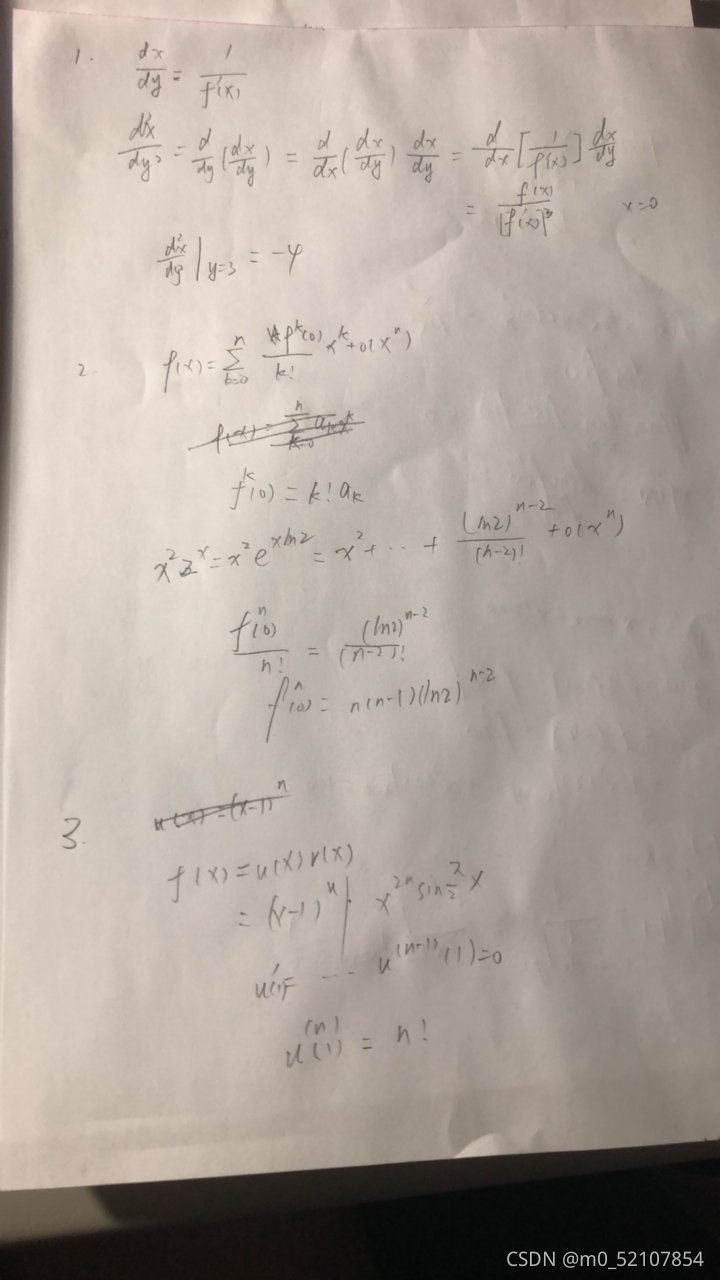 1. dx/dy = 1/f'(x)
d²x/dy² = d/dy(dx/dy) = d/dx(dx/dy) dx/dy = d/dx[1/f'(x)] dx/dy
= f'(x)/[f'(x)]³ x=0
d²x/dy² | y=3 = -4
2. f(x) = Σ k=0 n f^k(0)/k! x^k + o(x^n)
f^k(0) = k! a_k
x² 2^x = x² e^{xln2} = x² + ··· + (ln2)^{n-2}/(n-2)! + o(x^n)
f^n(0)/n! = (ln2)^{n-2}/(n-2)!
f^n(0) = n(n-1)(ln2)^{n-2}
3.
f(x) = u(x)v(x)
= (x-1)^n | x^{2n} sin π/2 x
u'(1)= ··· u^{(n-1)}(1)=0
u^{(n)}(1) = n!
CSDN @m0_52107854